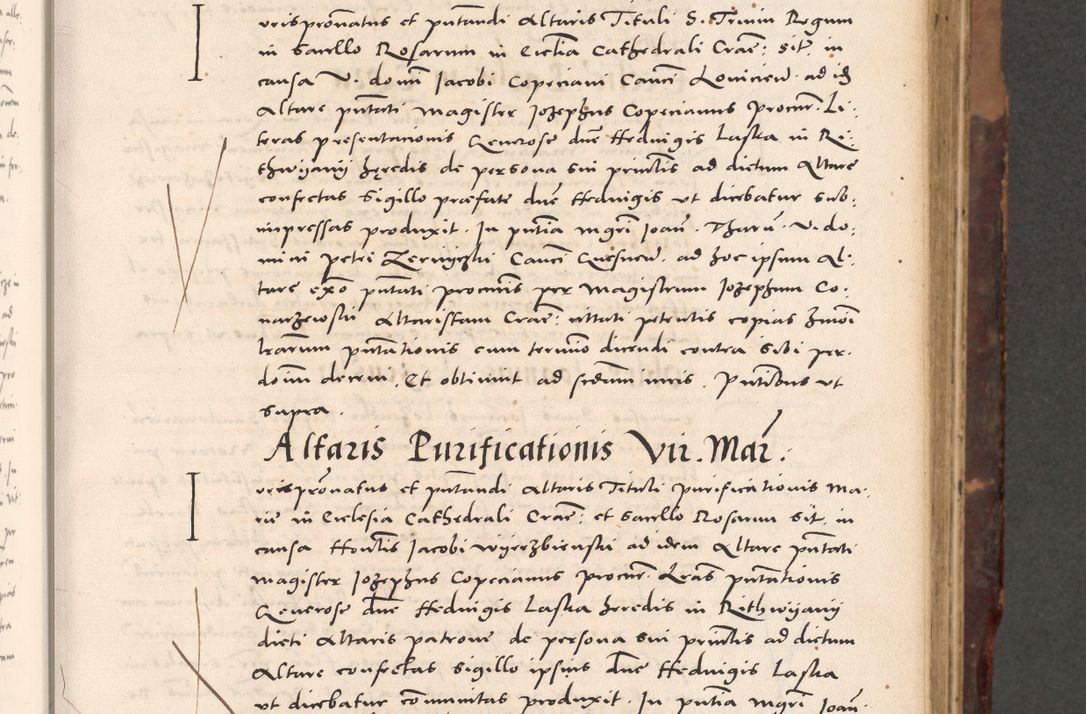 Iurispronatus et putandi Altaris Tituli S. Trium Regum
in Sacello Rosarum in Ecclia Cathedrali Crac: sit. in
causa V. domi Iacobi Copeciani Canci Lovicien. ad id
Altare putati Magister Iozephus Copecianus procur. Li-
teras presentationis Generose dne Hedwigis Laska in Ri-
thwijanij hęredis de persona sui princlis ad dictum Altare
confectas Sigillo præfate dne Hedvigis vt dicebatur sub-
impressas produxit. In putia mgri Joan. V. do-
mini petri Canci ad hoc ipsum Al-
tare exo putati procuris per Magistrum Iozephum Co-
narzewski Altaristam Crac: citati petentis copias
lrarum putationis cum termino dicendi contra sibi per
dominum decerni. Et obtinuit ad sedium iuris. Putibus vt
supra.
Altaris Purificationis Vir. Mar:
Iurispronatus et putandi Altaris Tituli purificationis Ma-
rie in Ecclesia Cathedrali Crac: et Sacello Rosarum sit. in
causa Hontis Jacobi Wyerzbienski ad idem Altare putati
magister Iozephus Copecianus procur. Lras putationis
Generose Dne Hedvigis Laska heredis in Rithwijanij
dicti Altaris patrone de persona sui princtis ad dictum
Altare confectas Sigillo ipsius Dne Hedvigis Laska
vt dicebatur communitas produxit. In putia mgri Joan.